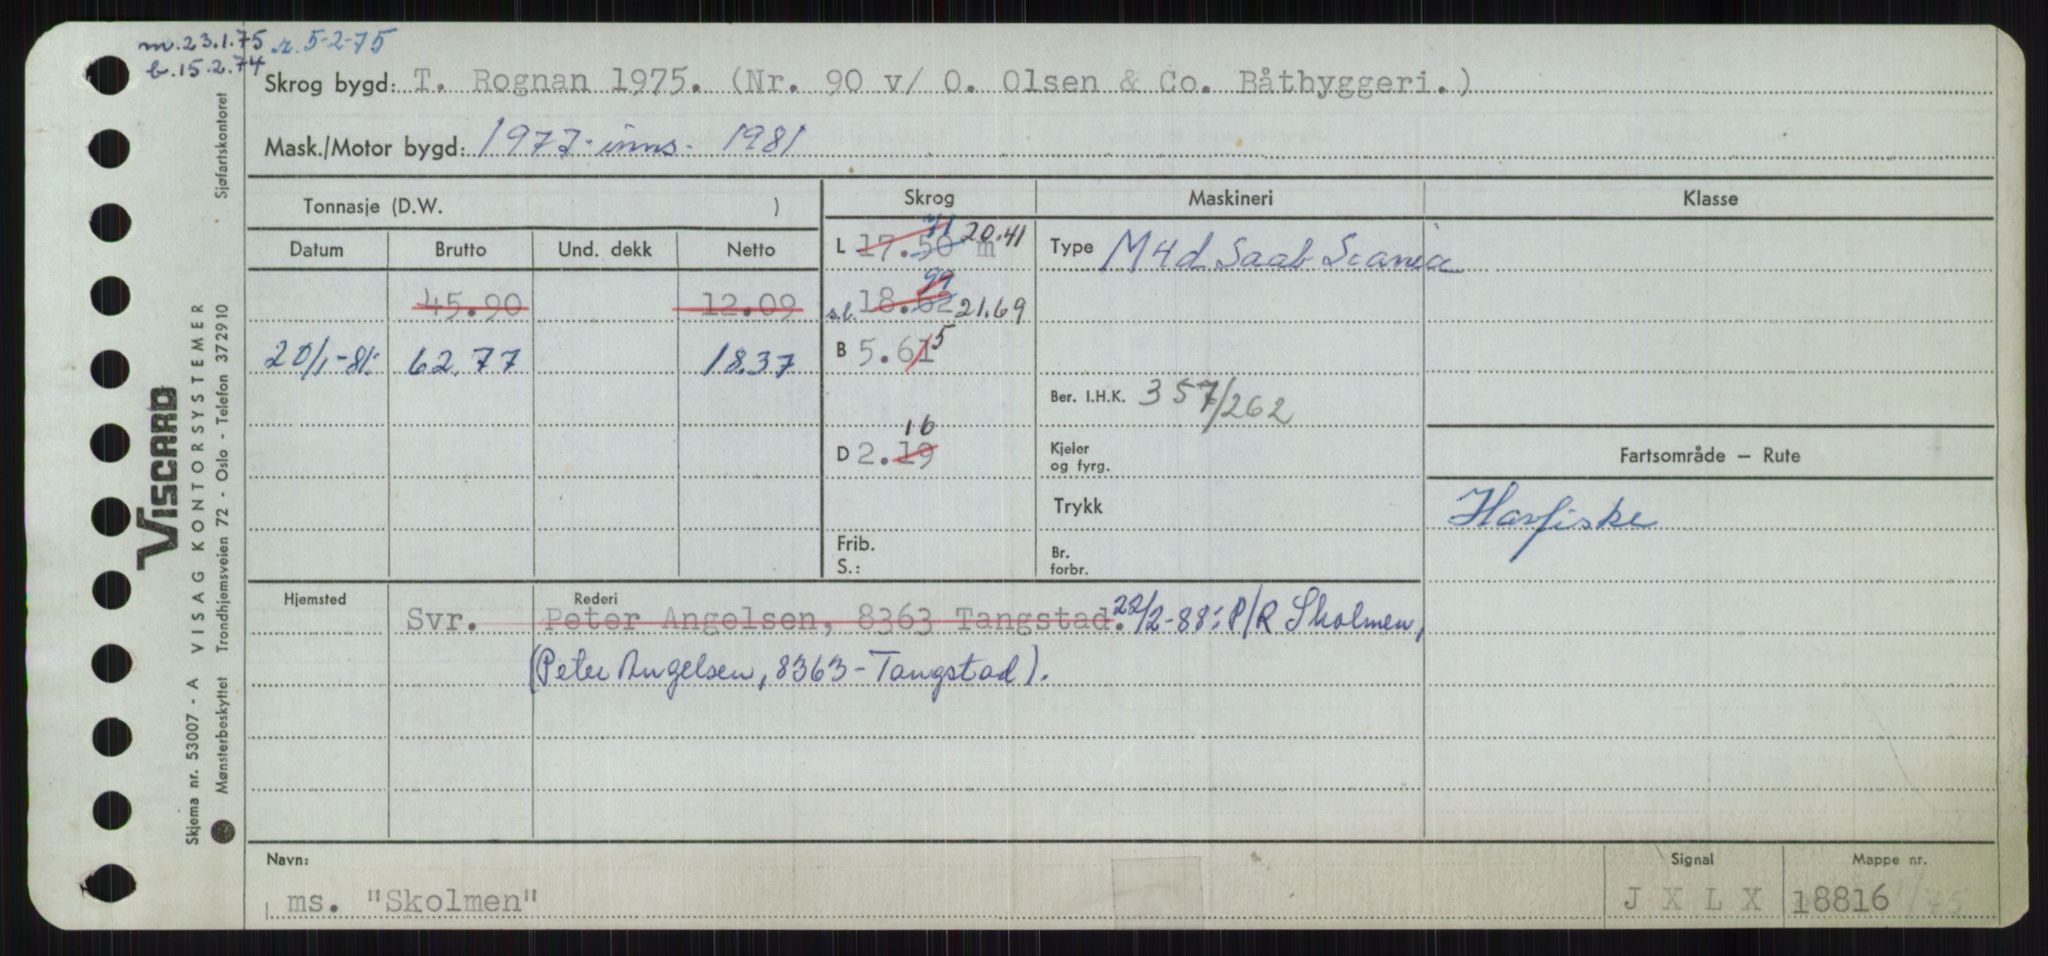 m. 23.1.75 r. 5-2-75
b. 15.2.74
Skrog bygd: T. Rognan 1975. (Nr. 90 v/ O. Olsen & Co. Båtbyggeri.)
Mask./Motor bygd: 1977. inns. 1981
Tonnasje (D.W. ) Skrog Maskineri Klasse
Datum Brutto Und. dekk Netto L 17.50 m 71 20.41 Type M4d Saab Scania
45.90 12.09 s.l. 18.62 99 21.69
20/1-81: 62.77 18.37 B 5.61 5
Ber. I.H.K. 357/262
D 2.19 16 Kjeler og fyrg. Fartsområde – Rute
Trykk Havfiske
Frib. Br.
S.: forbr.
Hjemsted Rederi
Svr. Peter Angelsen, 8363 Tangstad. 22/2-88: P/R Skolmen,
(Peter Angelsen, 8363 - Tangstad).
Navn: Signal Mappe nr.
ms. "Skolmen" J X L X 18816 /75
VISCARD
Skjema nr. 53007 - A VISAG KONTORSYSTEMER
Mønsterbeskyttet Trondhjemsveien 72 - Oslo - Telefon 372910 Sjøfartskontoret